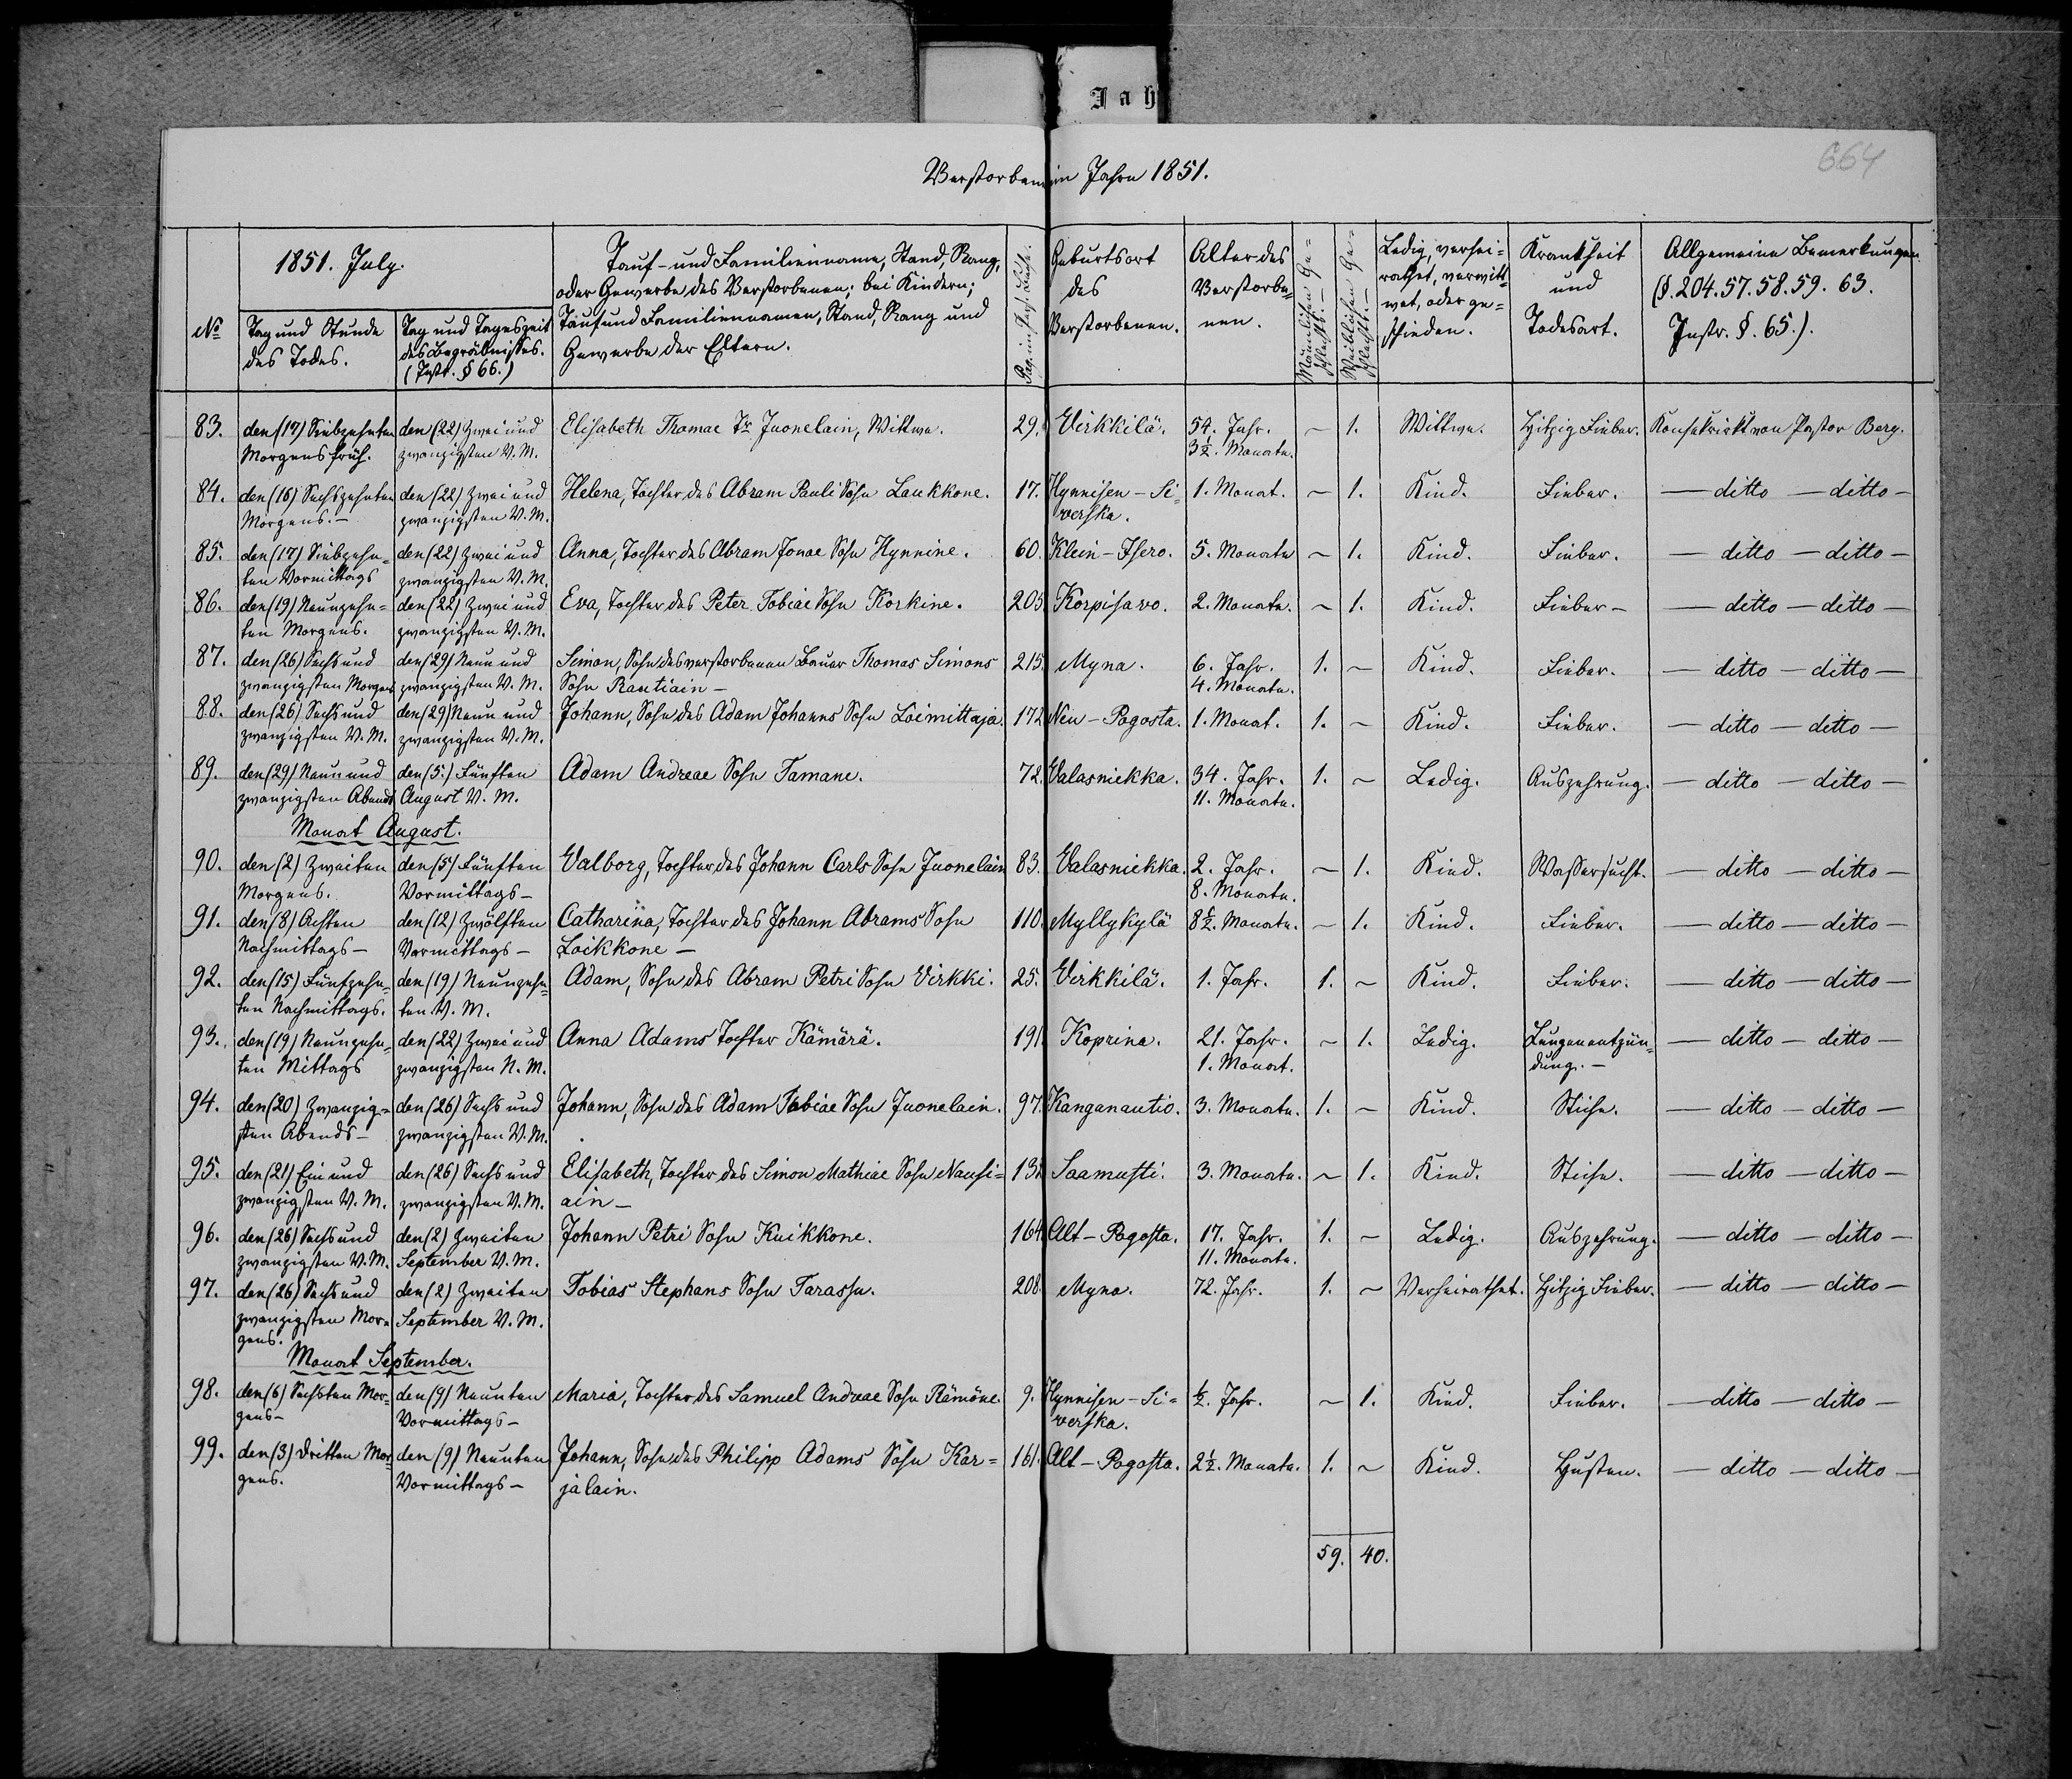 Jah
664
Verstorbene im Jahre 1851.
1851. July.
No
Tag und Stunde
des Todes.
Tag und Tageszeit
des Begräbnisses.
(Instr. § 66.)
Tauf- und Familienname, Stand, Rang,
oder Gewerbe des Verstorbenen; bei Kindern;
Tauf und Familiennamen, Stand, Rang und
Gewerbe der Eltern.
Geburtsort
des
Verstorbenen.
Alter des
Verstorbe=
nen.
Männlichen Ge=
schlechts.-
Weiblichen Ge=
schlechts.-
Ledig, verhei=
rathet, verwitt=
wet, oder ge=
schieden.
Krankheit
und
Todesart.
Allgemeine Bemerkungen
(§. 204. 57. 58. 59. 63.
Instr. §. 65.).
83. den (17) Siebzehnten den (22) Zwei und Elisabeth Thomae Tr Juonelain, Wittwe. 29. Virkkilä. 54. Jahr. ~ 1. Wittwe. Hitzig Fieber. Konsekrirt von Pastor Berg.
Morgens früh. zwanzigsten V. M. 3½. Monate.
84. den (16) Sechszehnten den (22) Zwei und Helena, Tochter des Abram Pauli Sohn Laukkone. 17. Hynnisen-Si= 1. Monat. ~ 1. Kind. Fieber. — ditto — ditto —
Morgens.- zwanzigsten V. M. verska.
85. den (17) Siebzehn= den (22) Zwei und Anna, Tochter des Abram Jonae Sohn Hynnine. 60. Klein-Isero. 5. Monate ~ 1. Kind. Fieber. — ditto — ditto —
ten Vormittags zwanzigsten V. M.
86. den (19) Neunzehn= den (22) Zwei und Eva, Tochter des Peter Tobiae Sohn Korkine. 205 Korpisavo. 2. Monate. ~ 1. Kind. Fieber - — ditto — ditto —
ten Morgens. zwanzigsten V. M.
87. den (26) Sechs und den (29) Neun und Simon, Sohn des verstorbenen Bauer Thomas Simons 215. Myna. 6. Jahr. 1. ~ Kind. Fieber. — ditto — ditto —
zwanzigsten Morgens zwanzigsten V. M. Sohn Rautiain - 4. Monate.
88. den (26) Sechs und den (29) Neun und Johann, Sohn des Adam Johanns Sohn Loimittaja. 172 Neu-Pogosta. 1. Monat. 1. ~ Kind. Fieber. — ditto — ditto —
zwanzigsten V. M. zwanzigsten V. M.
89. den (29) Neun und den (5.) Fünften Adam Andreae Sohn Tamane. 72. Valasniekka. 34. Jahr. 1. ~ Ledig. Auszehrung. — ditto — ditto —
zwanzigsten Abends August V. M. 11. Monate.
Monat August.
90. den (2) Zweiten den (5) Fünften Valborg, Tochter des Johann Carls Sohn Juonelain 83. Valasniekka. 2. Jahr. ~ 1. Kind. Wassersucht. — ditto — ditto —
Morgens. Vormittags - 8. Monate.
91. den (8) Achten den (12) Zwölften Catharina, Tochter des Johann Abrams Sohn 110. Myllykylä 8½. Monate. ~ 1. Kind. Fieber. — ditto — ditto —
Nachmittags - Vormittags - Loikkone -
92. den (15) Fünfzehn= den (19) Neunzehn= Adam, Sohn des Abram Petri Sohn Virkki. 25. Virkkilä. 1. Jahr. 1. ~ Kind. Fieber. — ditto — ditto —
ten Nachmittags. ten V. M.
93. den (19) Neunzehn= den (22) Zwei und Anna Adams Tochter Kämärä. 191. Koprina. 21. Jahr. ~ 1. Ledig. Lungenentzün= — ditto — ditto —
ten Mittags zwanzigsten N. M. 1. Monat. dung.-
94. den (20) Zwanzig= den (26) Sechs und Johann, Sohn des Adam Tobiae Sohn Juonelain. 97. Kanganautio. 3. Monate. 1. ~ Kind. Stiche. — ditto — ditto —
sten Abends - zwanzigsten V. M.
95. den (21) Ein und den (26) Sechs und Elisabeth, Tochter des Simon Mathiae Sohn Nausi= Saamusti. 3. Monate. ~ 1. Kind. Stiche. — ditto — ditto —
zwanzigsten V. M. zwanzigsten V. M. ain -
96. den (26) Sechs und den (2) Zweiten Johann Petri Sohn Kuikkone. 164 Alt-Pogosta. 17. Jahr. 1. ~ Ledig. Auszehrung. — ditto — ditto —
zwanzigsten V. M. September V. M. 11. Monate.
97. den (26) Sechs und den (2) Zweiten Tobias Stephans Sohn Tarassu. 208. Myna. 72. Jahr. 1. ~ Verheirathet. Hitzig Fieber. — ditto — ditto —
zwanzigsten Mor= September V. M.
gens.
Monat September.
98. den (6) Sechsten Mor= den (9) Neunten Maria, Tochter des Samuel Andreae Sohn Rämöne. 9. Hynnisen-Si= ½. Jahr. ~ 1. Kind. Fieber. — ditto — ditto —
gens - Vormittags - verska.
99. den (3) Dritten Mor= den (9) Neunten Johann, Sohn des Philipp Adams Sohn Kar= 161. Alt-Pogosta. 2½. Monate. 1. ~ Kind. Husten. — ditto — ditto —
gens. Vormittags - jalain.
59. 40.